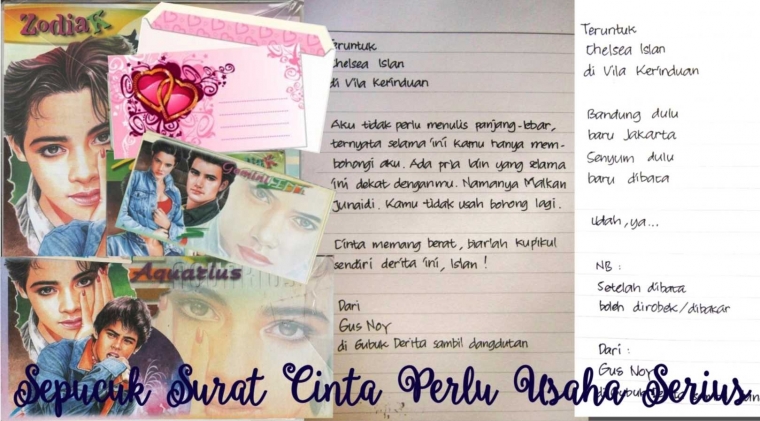 Zodiak
Gemini
Aquarius
Teruntuk
Chelsea Islan
di Vila Kerinduan
Aku tidak perlu menulis panjang-lebar,
ternyata selama ini kamu hanya mem-
bohongi aku. Ada pria lain yang selama
ini dekat denganmu. Namanya Malkan
Junaidi. Kamu tidak usah bohong lagi.
Cinta memang berat, biarlah kupikul
sendiri derita ini, Islan !
Dari
Gus Noy
di Gubuk Derita sambil dangdutan
Teruntuk
Chelsea Islan
di Vila Kerinduan
Bandung dulu
baru Jakarta
Senyum dulu
baru dibaca
Udah, ya...
NB :
Setelah dibaca
boleh dirobek/dibakar
Dari :
Gus Noy
Sepucuk Surat Cinta Perlu Usaha Serius